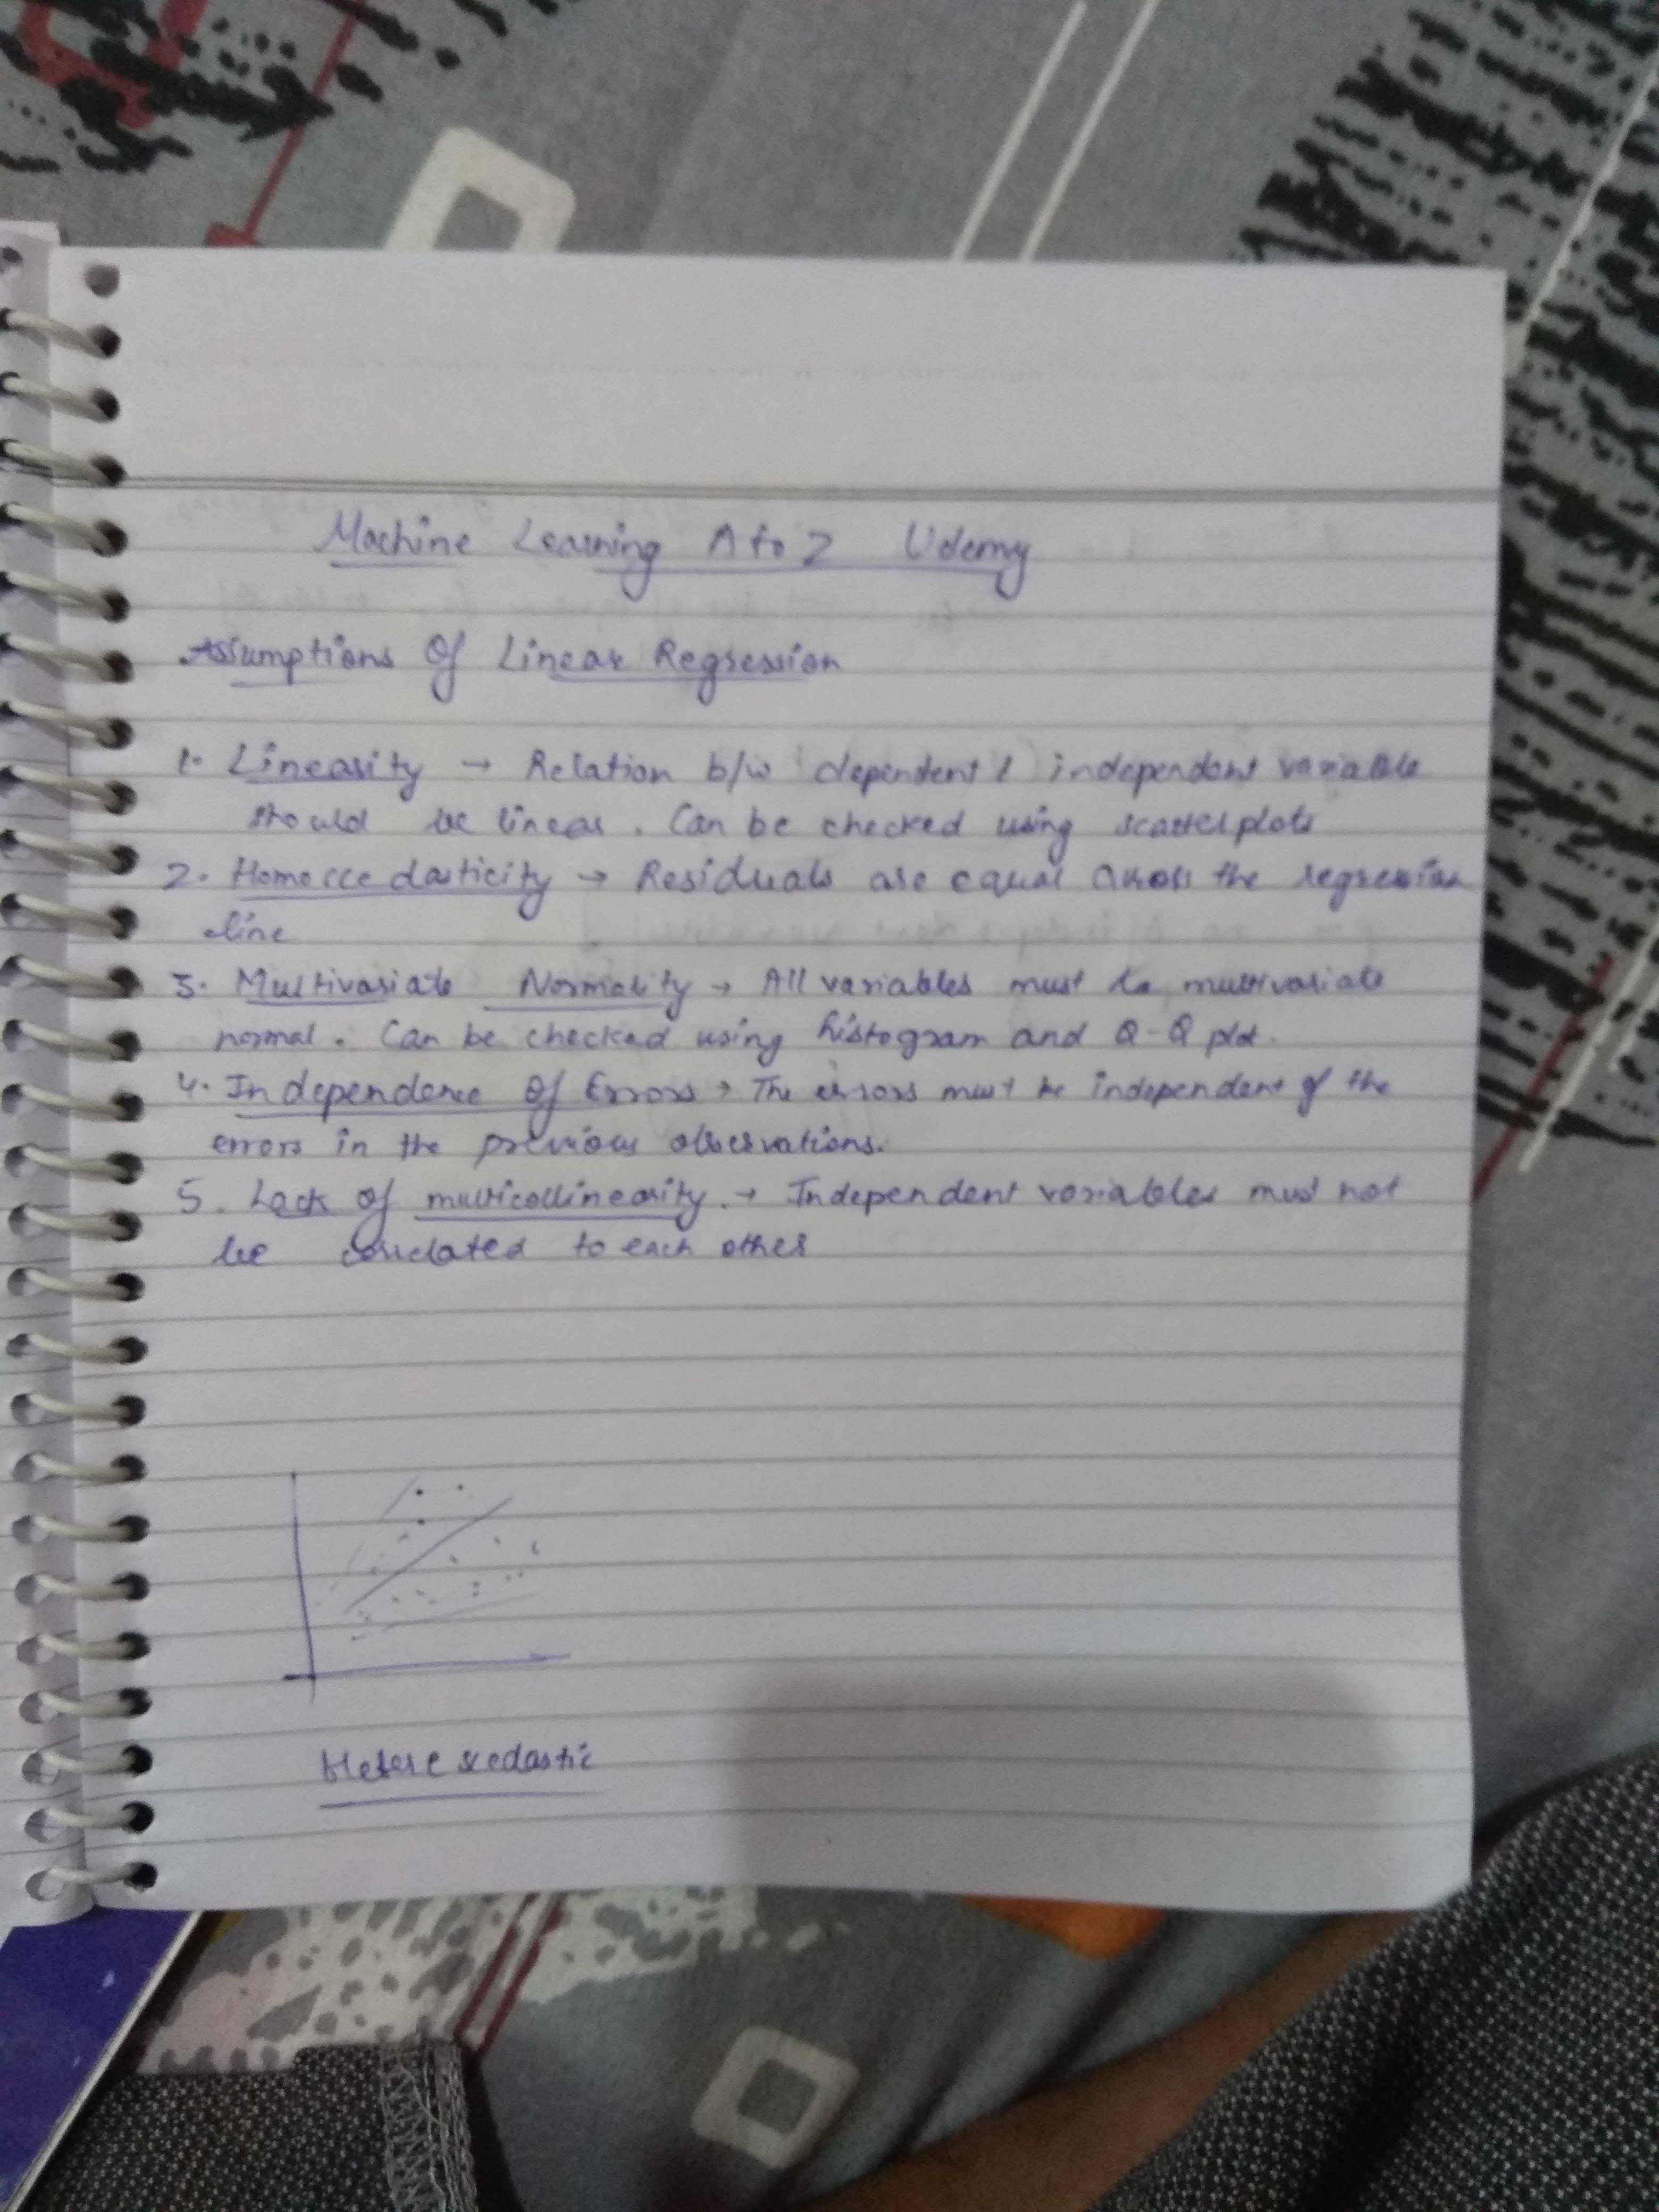 Machine Learning A to Z Udemy
Assumptions Of Linear Regression
1. Linearity → Relation b/w dependent & independent variable
should be linear. Can be checked using scatterplots
2. Homoscedasticity → Residuals are equal across the regression
line
3. Multivariate Normality → All variables must be multivariate
normal. Can be checked using histogram and Q-Q plot.
4. Independence Of Errors → The errors must be independent of the
errors in the previous observations.
5. Lack of multicollinearity. → Independent variables must not
be correlated to each other
Heteroscedastic